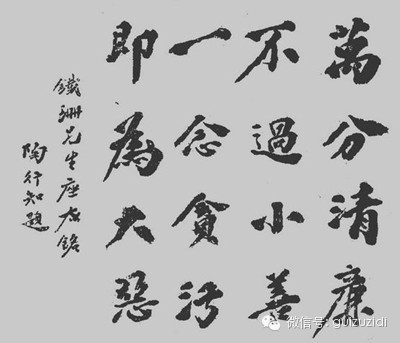 萬分清廉
不過小善
一念貪污
即為大惡
鐵珊先生座右銘
陶行知題
微信号: guizuzidi